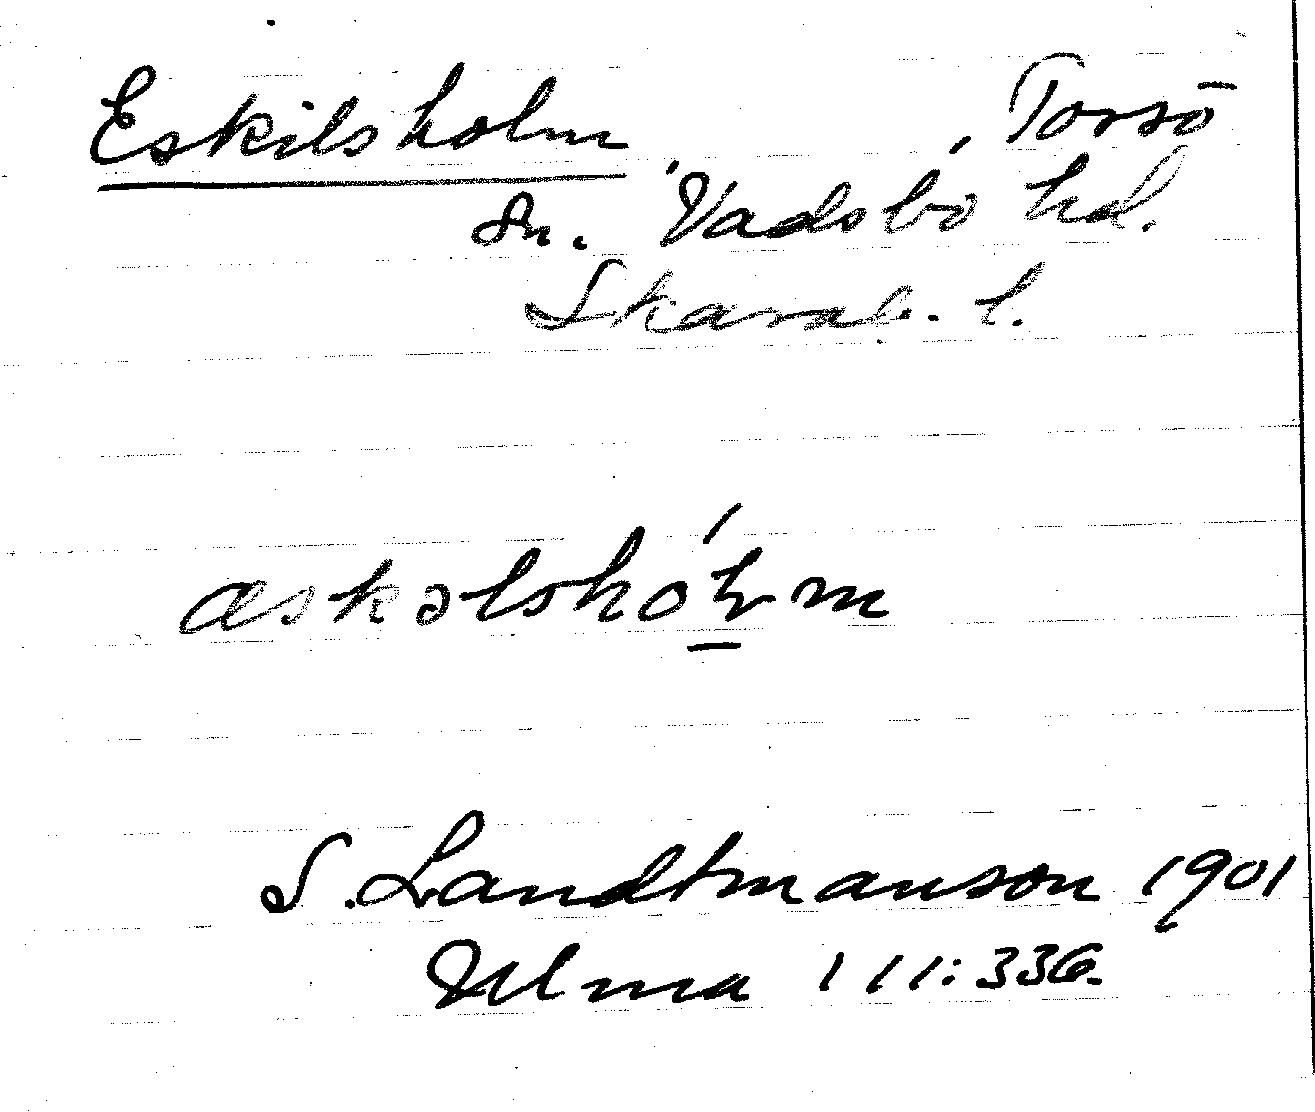 Eskilsholm, Torsö
sn. Vadsbo hd.
Skarab. l.
S. Landtmanson 1901
Ulma 111:336.